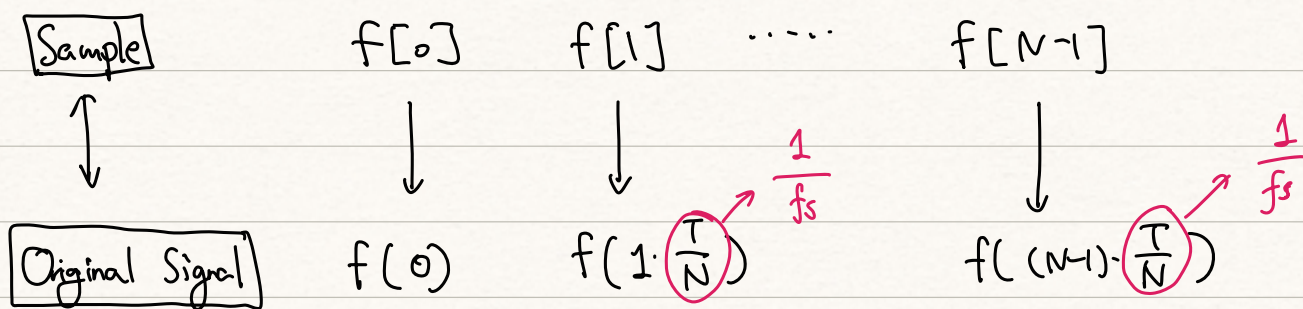 Sample f[0] f[1] ..... f[N-1]
1/fs 1/fs
Original Signal f(0) f(1·T/N) f((N-1)·T/N)